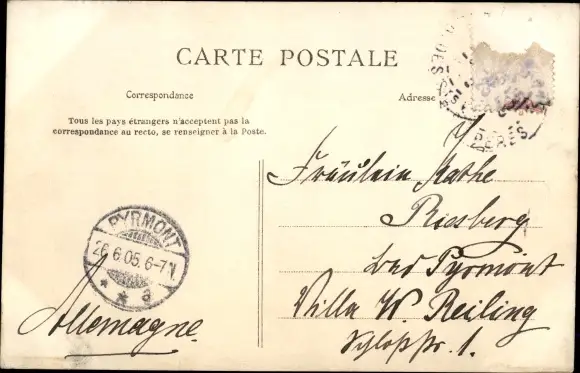 CARTE POSTALE
Correspondance
Adresse
Tous les pays étrangers n'acceptent pas la
correspondance au recto, se renseigner à la Poste.
Fräulein Käthe
Riesberg
Bad Pyrmont
Villa W. Reiling
Schloßstr. 1.
Allemagne.
PYRMONT
26.6.05. 6-7N.
* * a